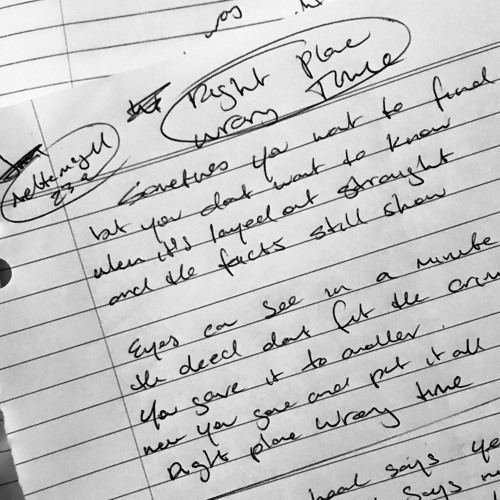 Right Place
Wrong Time
Sometimes you want to find
but you dont want to know
when it's layed out straught
and the facts still show
Eyes can see in a minute
the deed dont fit the
You gave it to another.
now you gone and put it all
Right place wrong time
head says
says